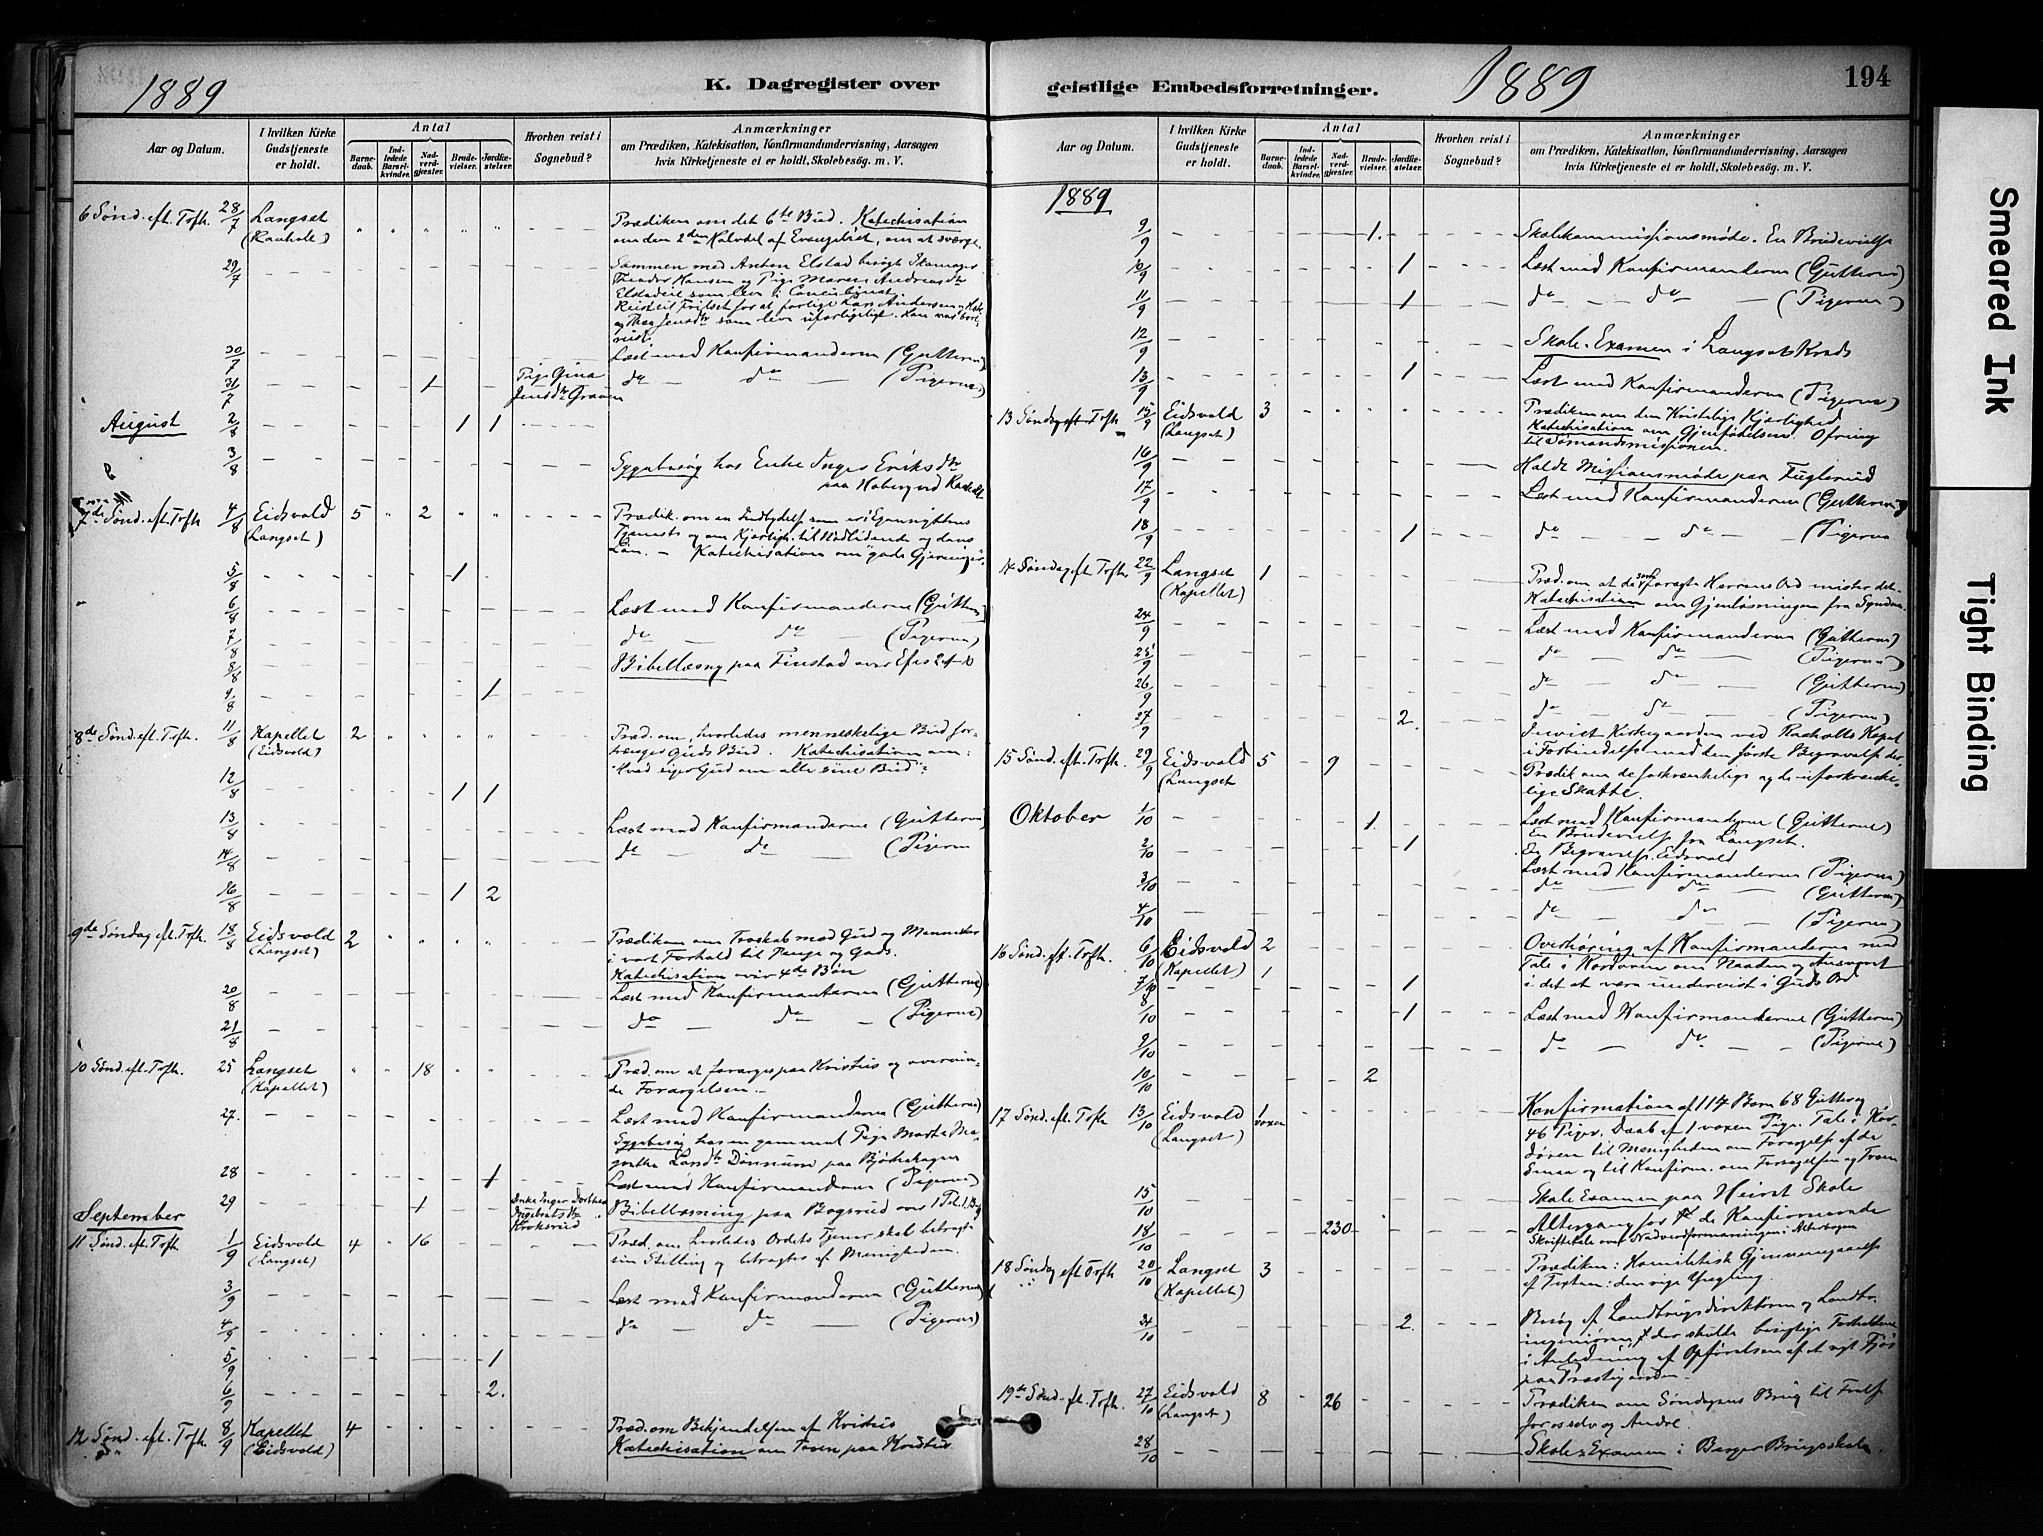 1889
K. Dagregister over
Aar og Datum.
I hvilken Kirke Gudstjeneste er holdt.
Antal
Barnedaab.
Indledede Barselkvinder.
Nadverdgjæster.
Brudevielser.
Jordfæstelser.
Hvorhen reist i Sognebud?
Anmærkninger
om Prædiken, Katekisation, Konfirmandundervisning, Aarsagen
hvis Kirketjeneste ei er holdt, Skolebesög. m. V.
6 Sønd. eft. Trfth. 28/7 Langset Prædiken om det 6te Bud. Katechisation
om den 2den Halvdel af Evangeliet, om at sværge.
29/7 Sammen med Anton Elstad besøgte
30/7 Læst med Konfirmanderne (Gutterne)
31/7 1 Pige Gina do — do — (Pigerne)
August 2/8 1 1
3/8 Sygebesøg hos Enke Inger Eriksdtr
7de Sønd. eft. Trfth. 4/8 Eidsvold 5 " 2 " "
(Langset)
Katechisation om "gode Gjerninger".
5/8 1
6/8 Læst med Konfirmanderne (Gutterne)
7/8 do — do — (Pigerne)
8/8 Bibellæsng paa Finstad over Efes 2
9/8 1
8de Sønd. eft. Trfth. 11/8 Kapellet 2 Præd. om, hvorledes menneskelige Bud for-
(Eidsvold) trænger Guds Bud. Katechisation om:
"Hvad siger Gud om alle sine Bud"?
12/8 1 1
13/8 Læst med Konfirmanderne (Gutterne)
14/8 do do — (Pigerne
16/8 1 2
9de Søndag eft. Trfth. 18/8 Eidsvold 2 Prædiken om Troskab mod Gud og Mennesker
(Langset) i vort Forhold til Penge og Gods.
Katechisation over 4de Bøn
20/8 Læst med Konfirmanterne (Gutterne)
21/8 do — do — (Pigerne)
10 Sønd. eft. Trfth. 25 Langset " " 18 " " Præd. om at forarges paa Kristus og overvin-
(Kapellet) de Forargelsen.
27. Læst med Konfirmanderne (Gutterne)
Sygebesøg hos en gammel Pige Marthe Ma-
28 1 Læst med Konfirmanderne (Pigerne)
29 1 Enke Inger Dorthea Bibellæsning paa Bogsrud over 1 Pet. 1
September
11 Sønd. eft. Trfth 1/9 Eidsvold 4 " 16 Præd. om hvorledes Ordets Tjener skal betragte
(Langset) sin Stilling og betragtes af Menigheden.
3/9 Læst med Konfirmanderne (Gutterne)
4/9 do — do — (Pigerne)
5/9 1
6/9 2.
12 Sønd. eft. Trfth. 8/9 Kapellet 4 Præd. om Bekjendelsen af Kristus
(Eidsvold) Katechisation om Troen paa Kristus
geistlige Embedsforretninger.
1889
194
Aar og Datum.
I hvilken Kirke Gudstjeneste er holdt.
Antal
Barnedaab.
Indledede Barselkvinder.
Nadverdgjæster.
Brudevielser.
Jordfæstelser.
Hvorhen reist i Sognebud?
Anmærkninger
om Prædiken, Katekisation, Konfirmandundervisning, Aarsagen
hvis Kirketjeneste ei er holdt, Skolebesög. m. V.
1889
9/9 1. Skolekommissionsmøde. En Brudevielse
10/9 1 Læst med Konfirmanderne (Gutterne)
11/9 1 do — do — (Pigerne)
12/9 Skole-Examen i Langset Kreds
13/9 1 Læst med Konfirmanderne (Pigerne)
13 Søndag eft Trfth 15/9 Eidsvold 3 Prædiken om den Kristelige Kjærlighed
(Langset) Katechisation om Gjenfødelsen. Ofring
til Sømandsmissionen.
16/9 Holdt Missionsmøde paa Fuglerud
17/9 Læst med Konfirmanderne (Gutterne)
18/9 1 do — do — (Pigerne
14 Søndag eft Trfth. 22/9 Langset 1 Præd. om at de som foragte Herrens Ord mister det.
(Kapellet) Katechisation om Gjenløsningen fra Synden.
24/9 Læst med Konfirmanderne (Gutterne)
25/9 do — do — (Pigerne)
26/9 do — do — (Gutterne)
27/9 2. do — do — (Pigerne)
Indviet Kirkegaarden ved Raaholts Kapel
i Forbindelse med den første Begravelse der.
15 Sønd. eft. Trfth. 29/9 Eidsvold 5 - 9 Prædik om de forkrænkelige og de uforkrænke-
(Langset lige Skatte.
Oktober 1/10 1. Læst med Konfirmanderne (Gutterne)
En Brudevielse fra Langset.
2/10 1 En Begravelse Eidsvold
Læst med Konfirmanderne (Pigerne)
3/10 do do (Gutterne)
4/10 do do — (Pigerne)
16 Sønd. eft. Trfth. 6/10 Eidsvold 2 Overhøring af Konfirmanderne med
(Kapellet) 1 Tale i Kordøren om Naaden og Ansvaret
7/10 1 i det at være undervist i Guds Ord
8/10 1 Læst med Konfirmanderne (Gutterne)
9/10 do — do — (Pigerne)
10/10 2
17 Sønd. eft. Trfth 13/10 Eidsvold 1 voxen Konfirmation af 114 Børn 68 Gutter og
(Langset) 46 Piger. Daab af 1 voxen Pige. Tale i Kor-
døren til Menigheden om Forargelse af de
Smaa og til Konfirm. om Forargelsen og Troen
15/10 Skole Examen paa Skole
18/10 230 Altergang for de Konfirmerede
Skriftetale over Nadverdformaningen i Alterbogen
18 Søndag eft Trfth 20/10 Langset 3 Prædiken: Homiletisk Gjennemgaaelse
(Kapellet) af Texten: den rige Yngling.
24/10 2. Besøg af Landbrugsdirektøren og Landbr.
ingeniøren, der skulde besigtige Forholdene
i Anledning af Opførelsen af et nyt Fjøs
paa Præstegaarden.
19de Sønd. eft. Trfth. 27/10 Eidsvold 8 - 26 Prædiken om Søndagens Brug til Frelse
(Langset) for os selv og Andre.
28/10 Skole-Examen i Berger Brugsskole.
Smeared Ink
Tight Binding